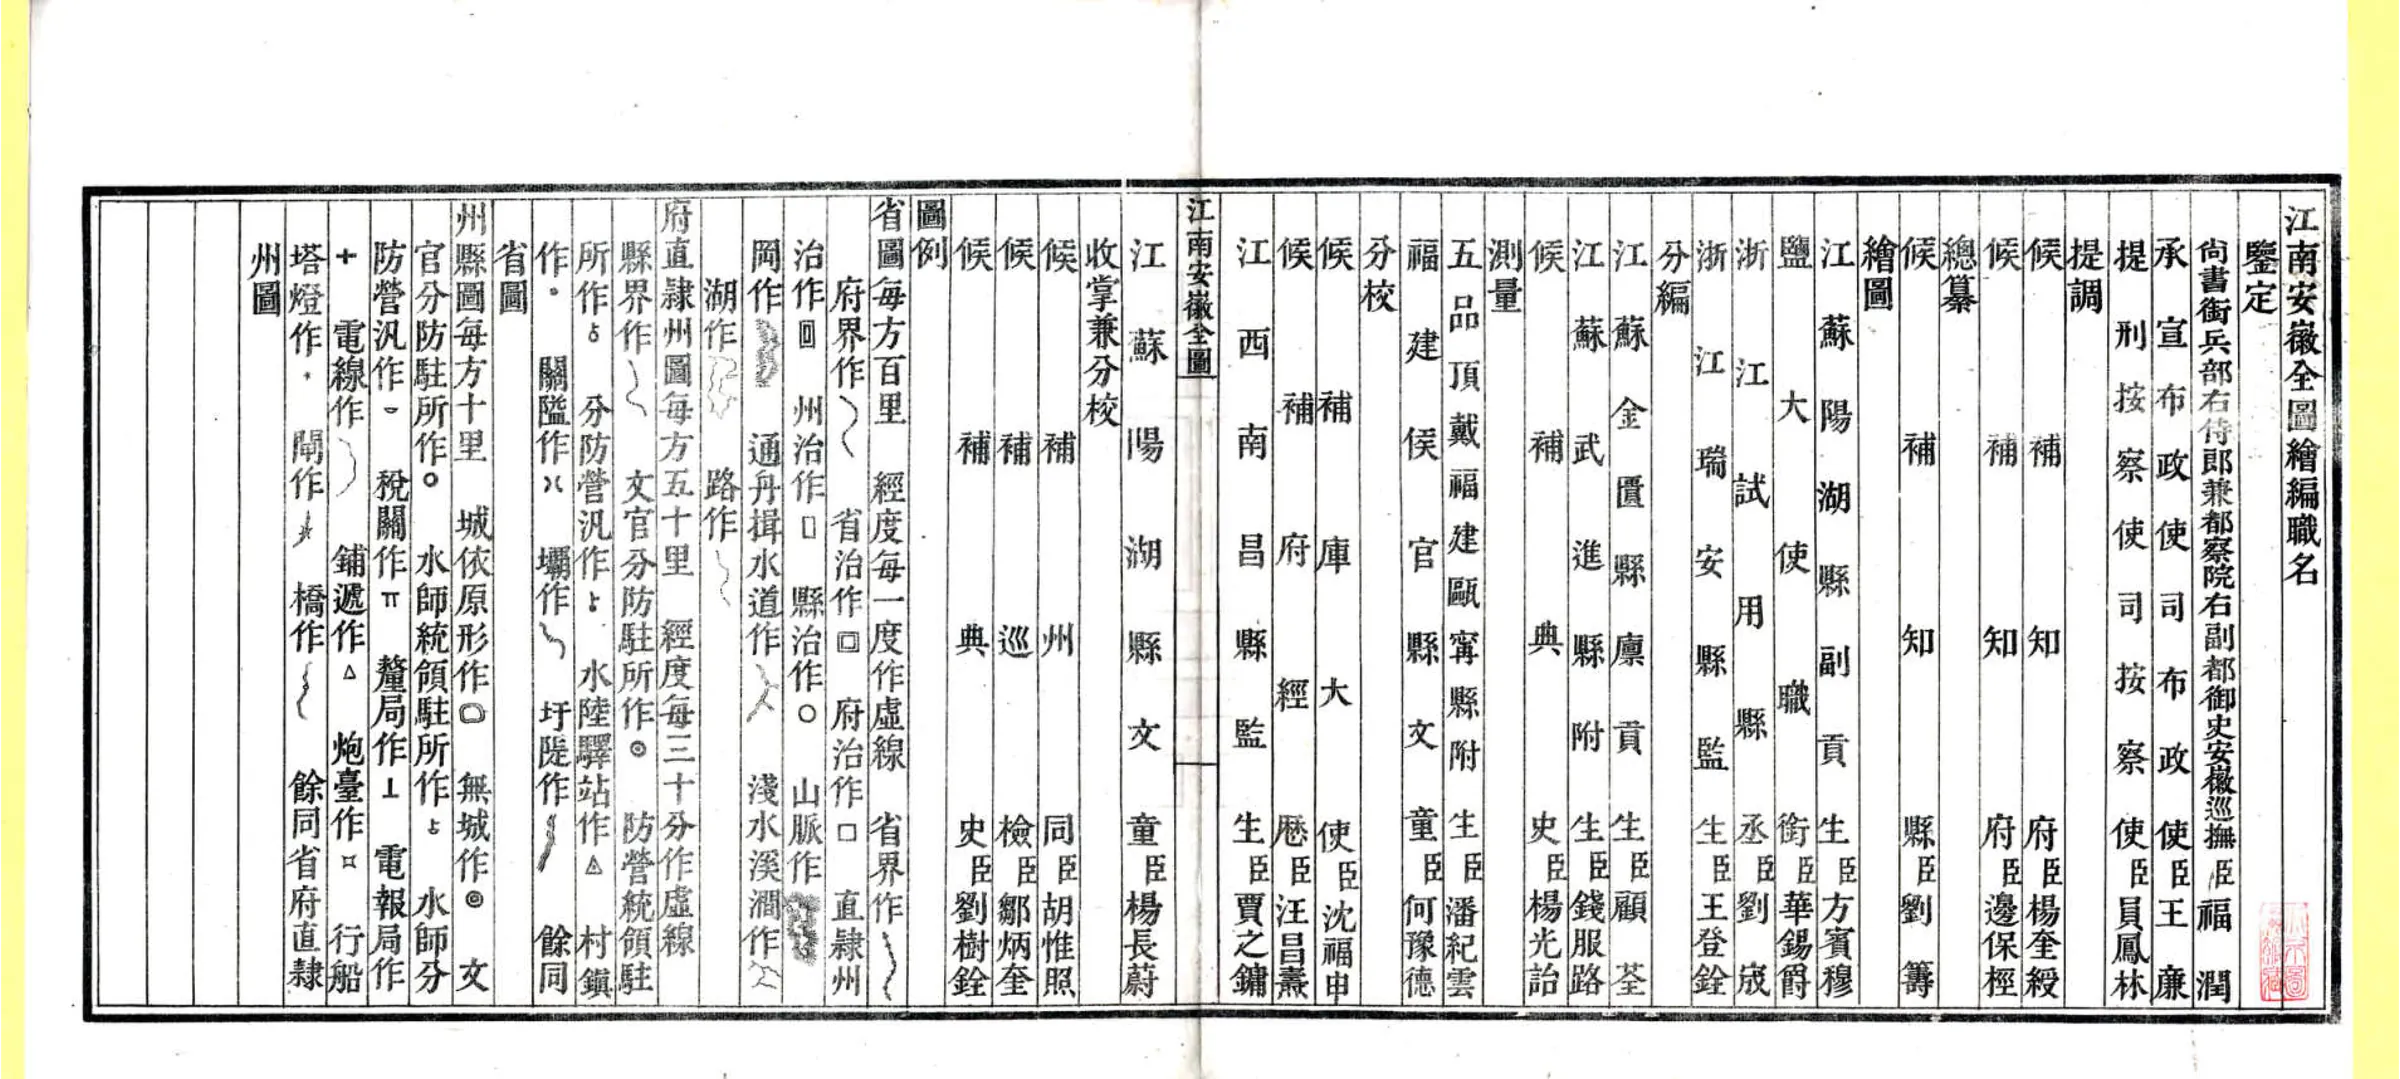 江南安徽全圖繪編職名
鑒定
尚書銜兵部右侍郎兼都察院右副都御史安徽巡撫臣福潤
承宣布政使司布政使臣王廉
提刑按察使司按察使臣員鳳林
提調
候補知府臣楊奎綬
候補知府臣邊保樫
總纂
候補知縣臣劉籌
繪圖
江蘇陽湖縣副貢生臣方賓穆
鹽大使職銜臣華錫爵
浙江試用縣丞臣劉宬
浙江瑞安縣監生臣王登銓
分編
江蘇金匱縣廩貢生臣顧荃
江蘇武進縣附生臣錢服路
候補典史臣楊光詒
測量
五品頂戴福建甌寧縣附生臣潘紀雲
福建侯官縣文童臣何豫德
分校
候補庫大使臣沈福申
候補府經歷臣汪昌燾
江西南昌縣監生臣賈之鏞
江南安徽全圖
江蘇陽湖縣文童臣楊長蔚
收掌兼分校
候補州同臣胡惟照
候補巡檢臣鄒炳奎
候補典史臣劉樹銓
圖例
省圖每方百里 經度每一度作虛線 省界作
府界作 省治作回 府治作□ 直隸州
治作 州治作 縣治作○ 山脈作
岡作 通舟揖水道作 淺水溪澗作
湖作 路作
府直隸州圖每方五十里 經度每三十分作虛線
縣界作 文官分防駐所作◎ 防營統領駐
所作 分防營汛作 水陸驛站作△ 村鎮
作 關隘作 壩作 圩隄作 餘同
省圖
州縣圖每方十里 城依原形作 無城作◎ 文
官分防駐所作○ 水師統領駐所作 水師分
防營汛作 稅關作 釐局作 電報局作
十 電線作 鋪遞作△ 炮臺作 行船
塔燈作 閘作 橋作 餘同省府直隸
州圖